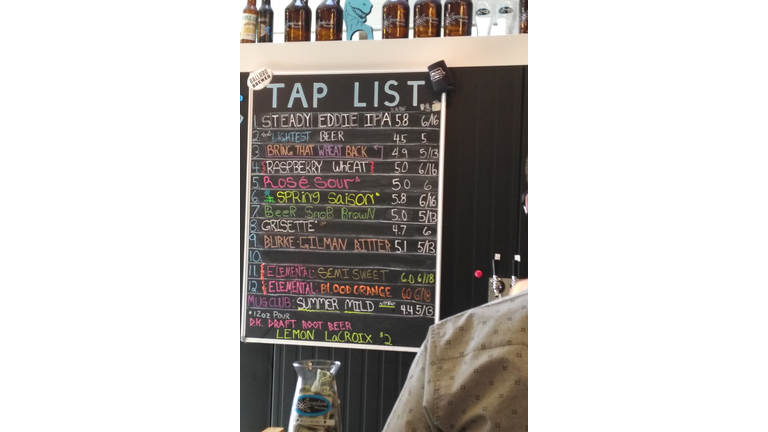 BALLARD BREWED
TAP LIST
%ABV $
1. STEADY EDDIE IPA 5.8 6/16
2. THE LIGHTEST BEER 4.5 5
3. BRING THAT WHEAT BACK 4.9 5/13
4. RASPBERRY WHEAT 5.0 6/16
5. ROSÉ SOUR* 5.0 6
6. SPRING SAISON* 5.8 6/16
7. BEER SNOB BROWN 5.0 5/13
8. GRISETTE* 4.7 6
9. BURKE-GILMAN BITTER 5.1 5/13
10.
11. ELEMENTAL: SEMI SWEET 6.0 6/18
12. ELEMENTAL: BLOOD ORANGE 6.0 6/18
MUG CLUB: SUMMER MILD 4.4 5/13
*12oz POUR
D.K. DRAFT ROOT BEER
LEMON LaCROIX $2